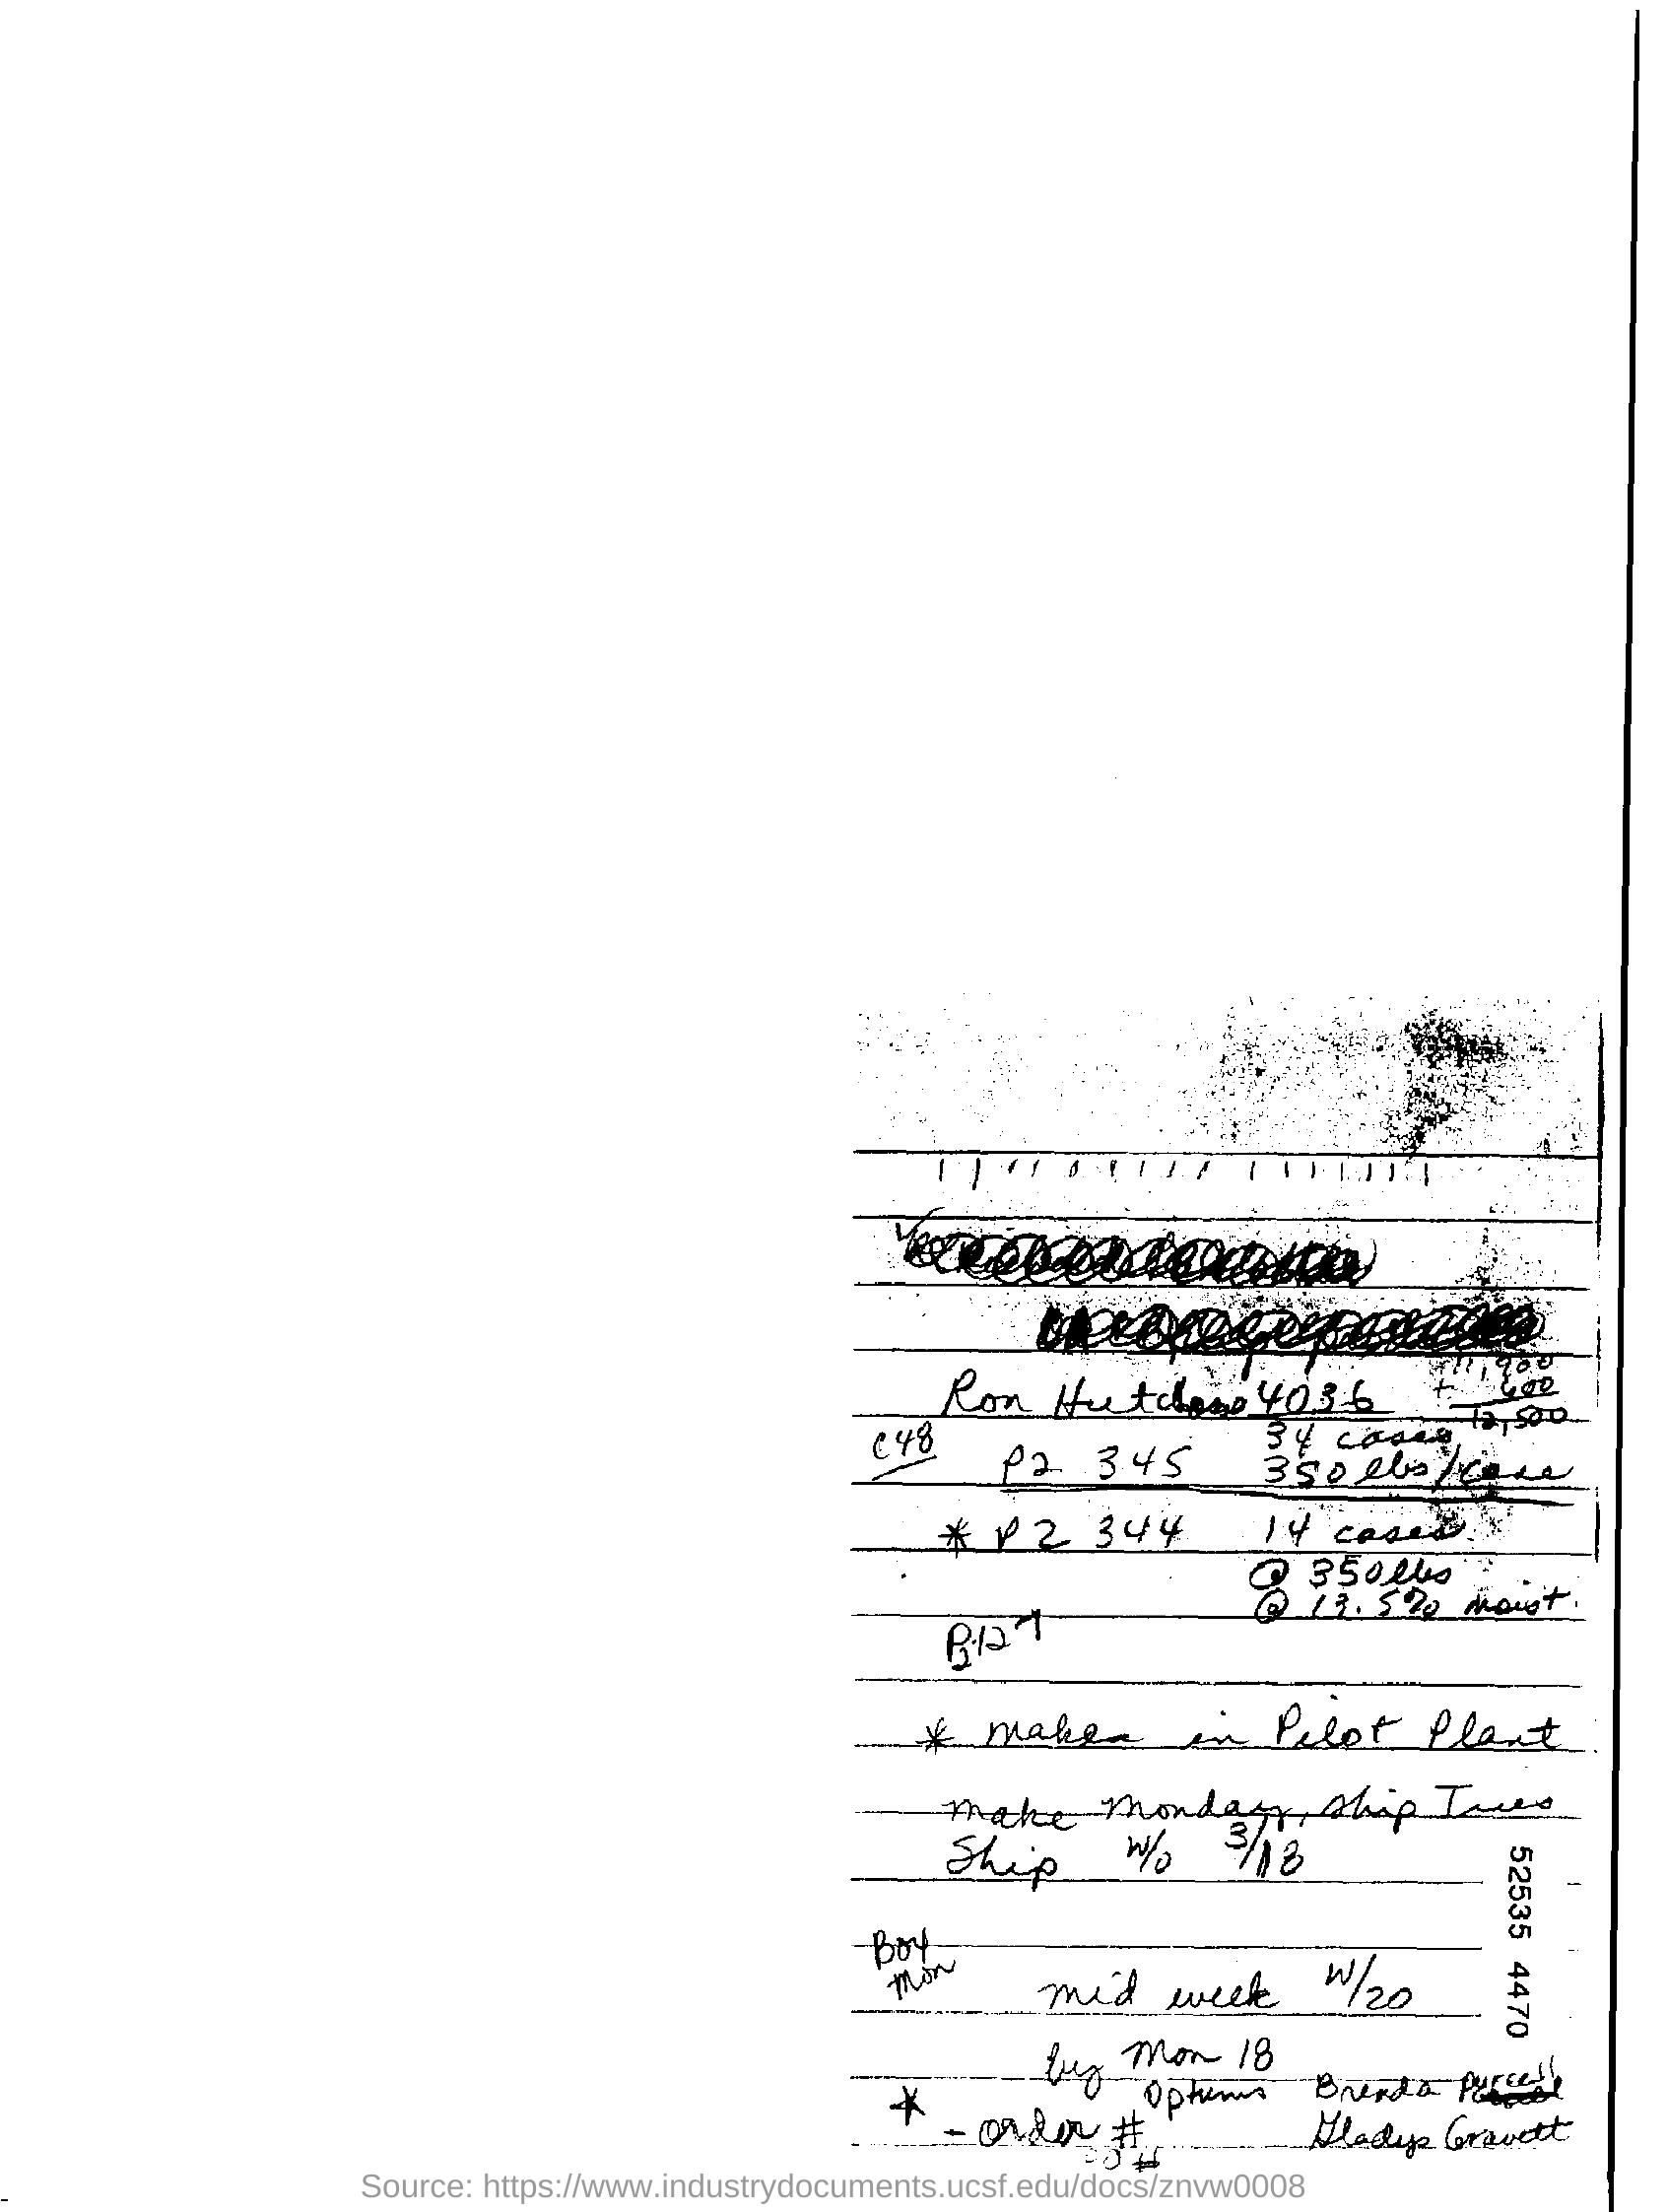 11,900
+ 600
12,500
Ron 4036
C48 34 cases
P2 345 350 lbs/case
* P2 344 14 cases
@ 350 lbs
@ 13.5% moist.
* makes in Pilot Plant
make Monday, ship Tues
Ship w/o 3/18
Box
Mon
mid week W/20
by Mon 18
Optums Brenda Purcell
* - order # Gladys Gravett
52535 4470
Source: https://www.industrydocuments.ucsf.edu/docs/znvw0008